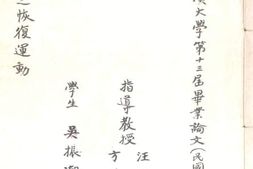 漢大學第十三屆畢業論文(民國
指導教授
汪
方
學生 吳振
之恢復運動